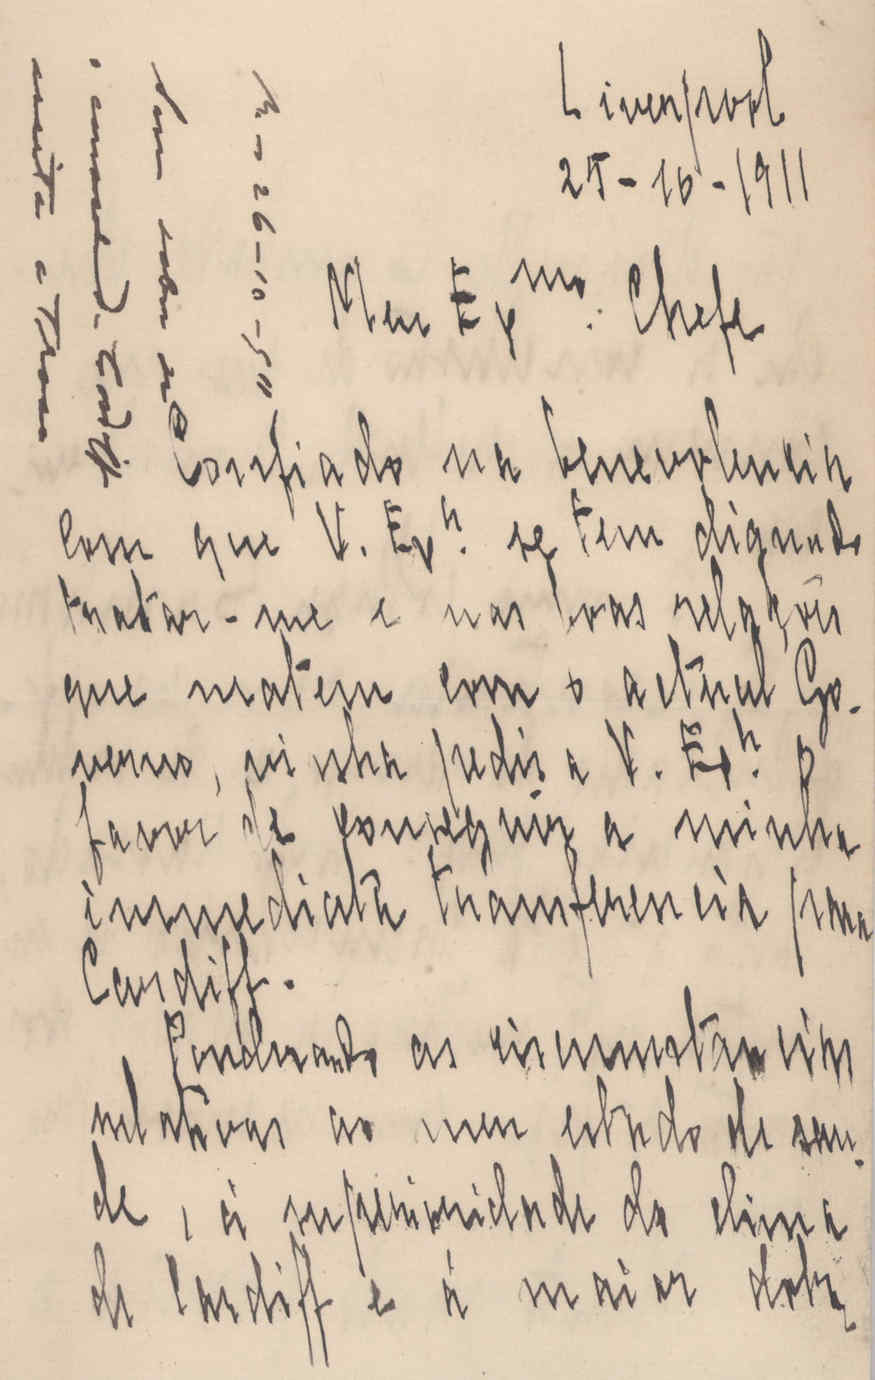 Liverpool
25-10-1911
Meu Ex.mo Chefe
Confiado na benevolencia
com que V. Exª. se tem dignado
tratar-me e nas boas relações
que matem com o actual Go-
verno, vinha pedir a V. Exª. o
favor de conseguir a minha
immediata transferencia para
Cardiff.
Ponderando as circumstancias
relativas ao meu estado de sau-
de, á superioridade do clima
de Cardiff e á maior
26-10-911